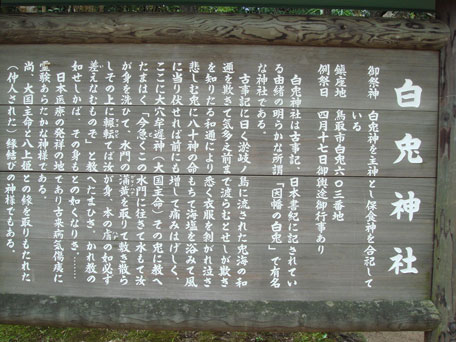 白兎神社
御祭神 白兎神を主神とし保食神を合記して
いる
鎮座地 鳥取市白兎六〇三番地
例祭日 四月十七日御輿途御行事あり
白兎神社は古事記、日本書紀に記されてい
る由緒の明らかな所謂『因幡の白兎』で有名
な神社である。
古事記に曰く淤岐ノ島に流された兎海の和
邇を欺きて気多之前まで渡らむとせしが欺き
を知りたる和邇により悉く衣服を剥がれ泣き
悲しむ兎に八十神の命もちて海塩を浴みて風
に当り伏せれば前にも増して痛みはげしく、
ここに大穴牟遅神(大国主命)その兎に教へ
たまはく『今急くこの水門に往きて水もて汝
が身を洗ひて、水門の蒲黄を取りて敷き散ら
しその上に輾転てば汝が身、本の膚の如必ず
差えなむものぞ』と教へたまひき、かれ教の
如せしかば、その身もとの如くなりき……
日本医療の発祥の地であり古来病気傷痍に
霊験あらたかな神様である。
尚、大国主命と八上姫との縁を取りもたれた
(仲人された)縁結びの神様でもある。